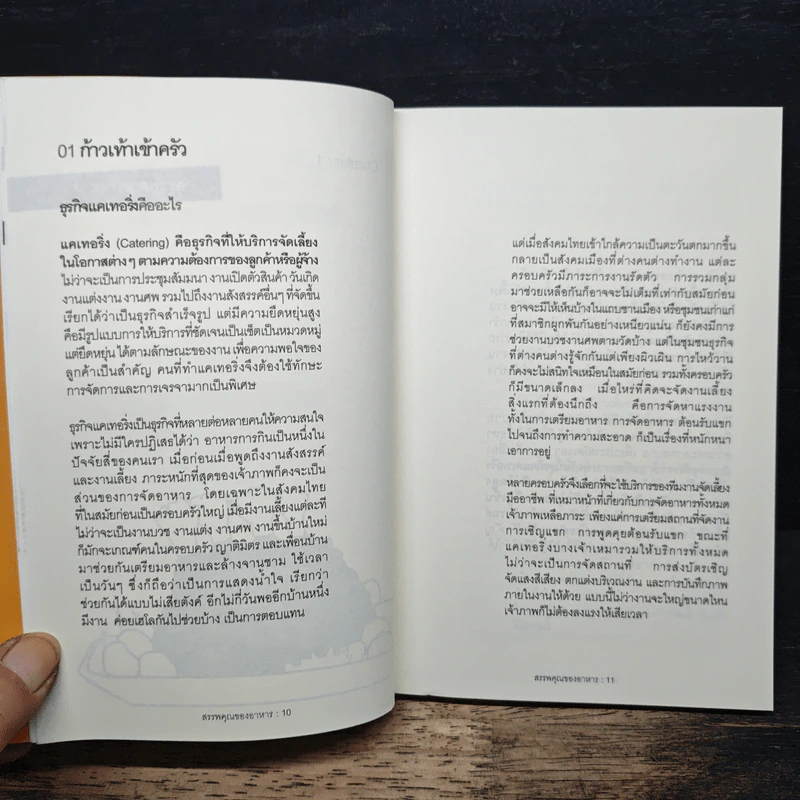 01 ก้าวเท้าเข้าครัว
ธุรกิจแคเทอริ่งคืออะไร
แคเทอริ่ง (Catering) คือธุรกิจที่ให้บริการจัดเลี้ยง
ในโอกาสต่างๆ ตามความต้องการของลูกค้าหรือผู้จ้าง
ไม่ว่าจะเป็นการประชุมสัมมนา งานเปิดตัวสินค้า วันเกิด
งานแต่งงาน งานศพ รวมไปถึงงานสังสรรค์อื่นๆ ที่จัดขึ้น
เรียกได้ว่าเป็นธุรกิจสำเร็จรูป แต่มีความยืดหยุ่นสูง
คือมีรูปแบบการให้บริการที่ชัดเจนเป็นเซ็ตเป็นหมวดหมู่
แต่ยืดหยุ่น ได้ตามลักษณะของงาน เพื่อความพอใจของ
ลูกค้าเป็นสำคัญ คนที่ทำแคเทอริ่งจึงต้องใช้ทักษะ
การจัดการและการเจรจามากเป็นพิเศษ
ธุรกิจแคเทอริ่งเป็นธุรกิจที่หลายต่อหลายคนให้ความสนใจ
เพราะไม่มีใครปฏิเสธได้ว่า อาหารการกินเป็นหนึ่งใน
ปัจจัยสี่ของคนเรา เมื่อก่อนเมื่อพูดถึงงานสังสรรค์
และงานเลี้ยง ภาระหนักที่สุดของเจ้าภาพก็คงจะเป็น
ส่วนของการจัดอาหาร โดยเฉพาะในสังคมไทย
ที่ในสมัยก่อนเป็นครอบครัวใหญ่ เมื่อมีงานเลี้ยงแต่ละที
ไม่ว่าจะเป็นงานบวช งานแต่ง งานศพ งานขึ้นบ้านใหม่
ก็มักจะเกณฑ์คนในครอบครัว ญาติมิตร และเพื่อนบ้าน
มาช่วยกันเตรียมอาหารและล้างจานชาม ใช้เวลา
เป็นวันๆ ซึ่งก็ถือว่าเป็นการแสดงน้ำใจ เรียกว่า
ช่วยกันได้แบบไม่เสียตังค์ อีกไม่กี่วันพออีกบ้านหนึ่ง
มีงาน ค่อยเฮโลกันไปช่วยบ้าง เป็นการตอบแทน
สรรพคุณของอาหาร : 10
แต่เมื่อสังคมไทยเข้าใกล้ความเป็นตะวันตกมากขึ้น
กลายเป็นสังคมเมืองที่ต่างคนต่างทำงาน แต่ละ
ครอบครัวมีภาระการงานรัดตัว การรวมกลุ่ม
มาช่วยเหลือกันก็อาจจะไม่เต็มที่เท่ากับสมัยก่อน
อาจจะมีให้เห็นบ้างในแถบชานเมือง หรือชุมชนเก่าแก่
ที่สมาชิกผูกพันกันอย่างเหนียวแน่น ก็ยังคงมีการ
ช่วยงานบวชงานศพตามวัดบ้าง แต่ในชุมชนธุรกิจ
ที่ต่างคนต่างรู้จักกันแต่เพียงผิวเผิน การไหว้วาน
ก็คงจะไม่สนิทใจเหมือนในสมัยก่อน รวมทั้งครอบครัว
ก็มีขนาดเล็กลง เมื่อไหร่ที่คิดจะจัดงานเลี้ยง
สิ่งแรกที่ต้องนึกถึง คือการจัดหาแรงงาน
ทั้งในการเตรียมอาหาร การจัดอาหาร ต้อนรับแขก
ไปจนถึงการทำความสะอาด ก็เป็นเรื่องที่หนักหนา
เอาการอยู่
หลายครอบครัวจึงเลือกที่จะใช้บริการของทีมงานจัดเลี้ยง
มืออาชีพ ที่เหมาหน้าที่เกี่ยวกับการจัดอาหารทั้งหมด
เจ้าภาพเหลือภาระ เพียงแค่การเตรียมสถานที่จัดงาน
การเชิญแขก การพูดคุยต้อนรับแขก ขณะที่
แคเทอริ่งบางเจ้าเหมารวมให้บริการทั้งหมด
ไม่ว่าจะเป็นการจัดสถานที่ การส่งบัตรเชิญ
จัดแสงสีเสียง ตกแต่งบริเวณงาน และการบันทึกภาพ
ภายในงานให้ด้วย แบบนี้ไม่ว่างานจะใหญ่ขนาดไหน
เจ้าภาพก็ไม่ต้องลงแรงให้เสียเวลา
สรรพคุณของอาหาร : 11